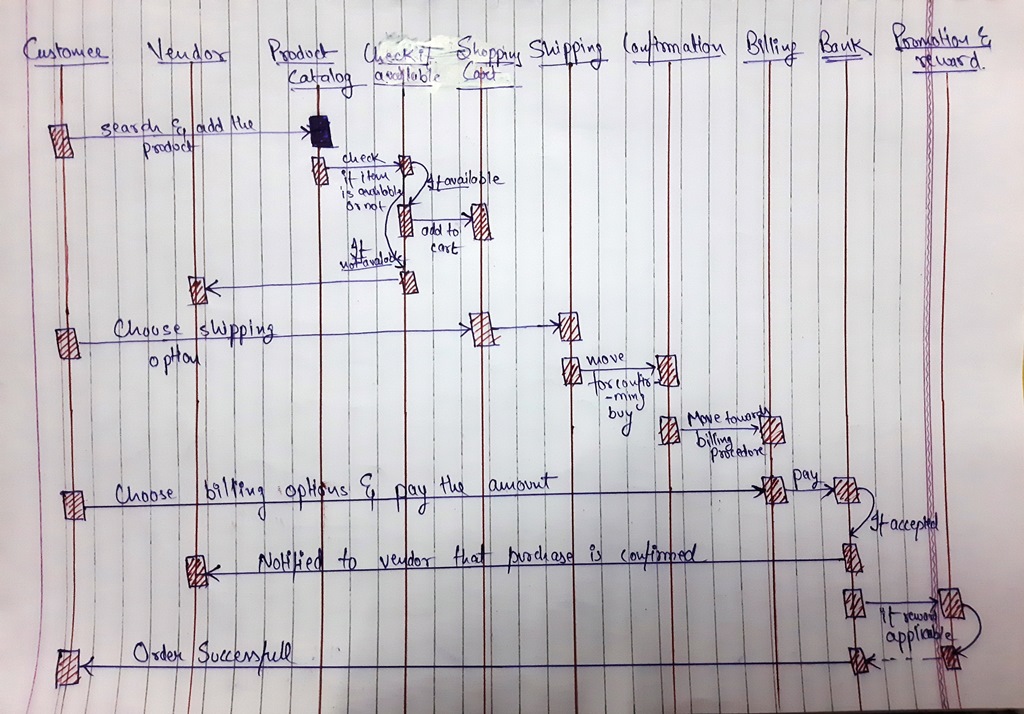 Customer Vendor Product Catalog Check if available Shopping Cart Shipping Confirmation Billing Bank Promotion & reward
search & add the
product
check
if item
is availble
or not
If available
add to
cart
If
not availab
Choose shipping
option
move
for confir-
-ming
buy
Move towards
billing
procedore
Choose billing options & pay the amount
pay
If accepted
Notified to vendor that purchase is confirmed
If reward
applicable
Order Successfull